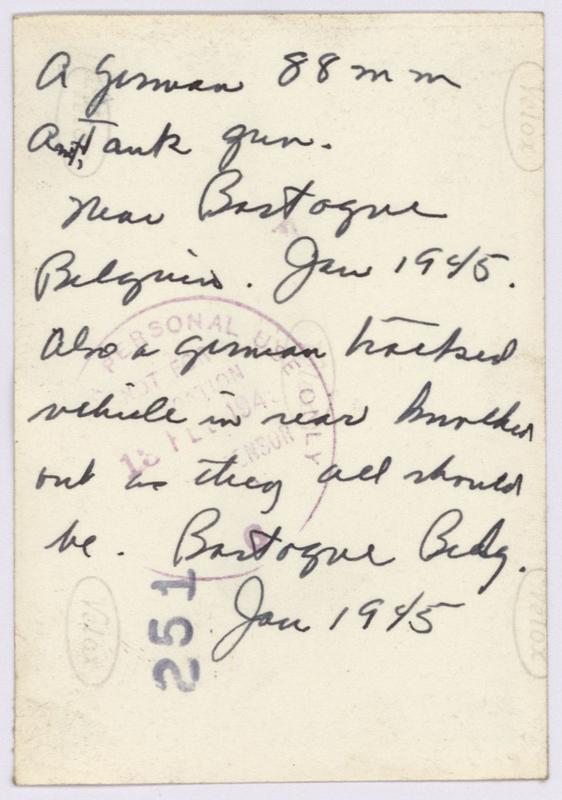 A German 88 mm
Anti, Tank gun.
Near Bastogne
Belgium. Jan 1945.
Also a german tracked
vehicle in rear knocked
out as they all should
be. Bastogne Belg.
Jan 1945
PERSONAL USE ONLY
NOT FOR
251
Velox
Velox
Velox